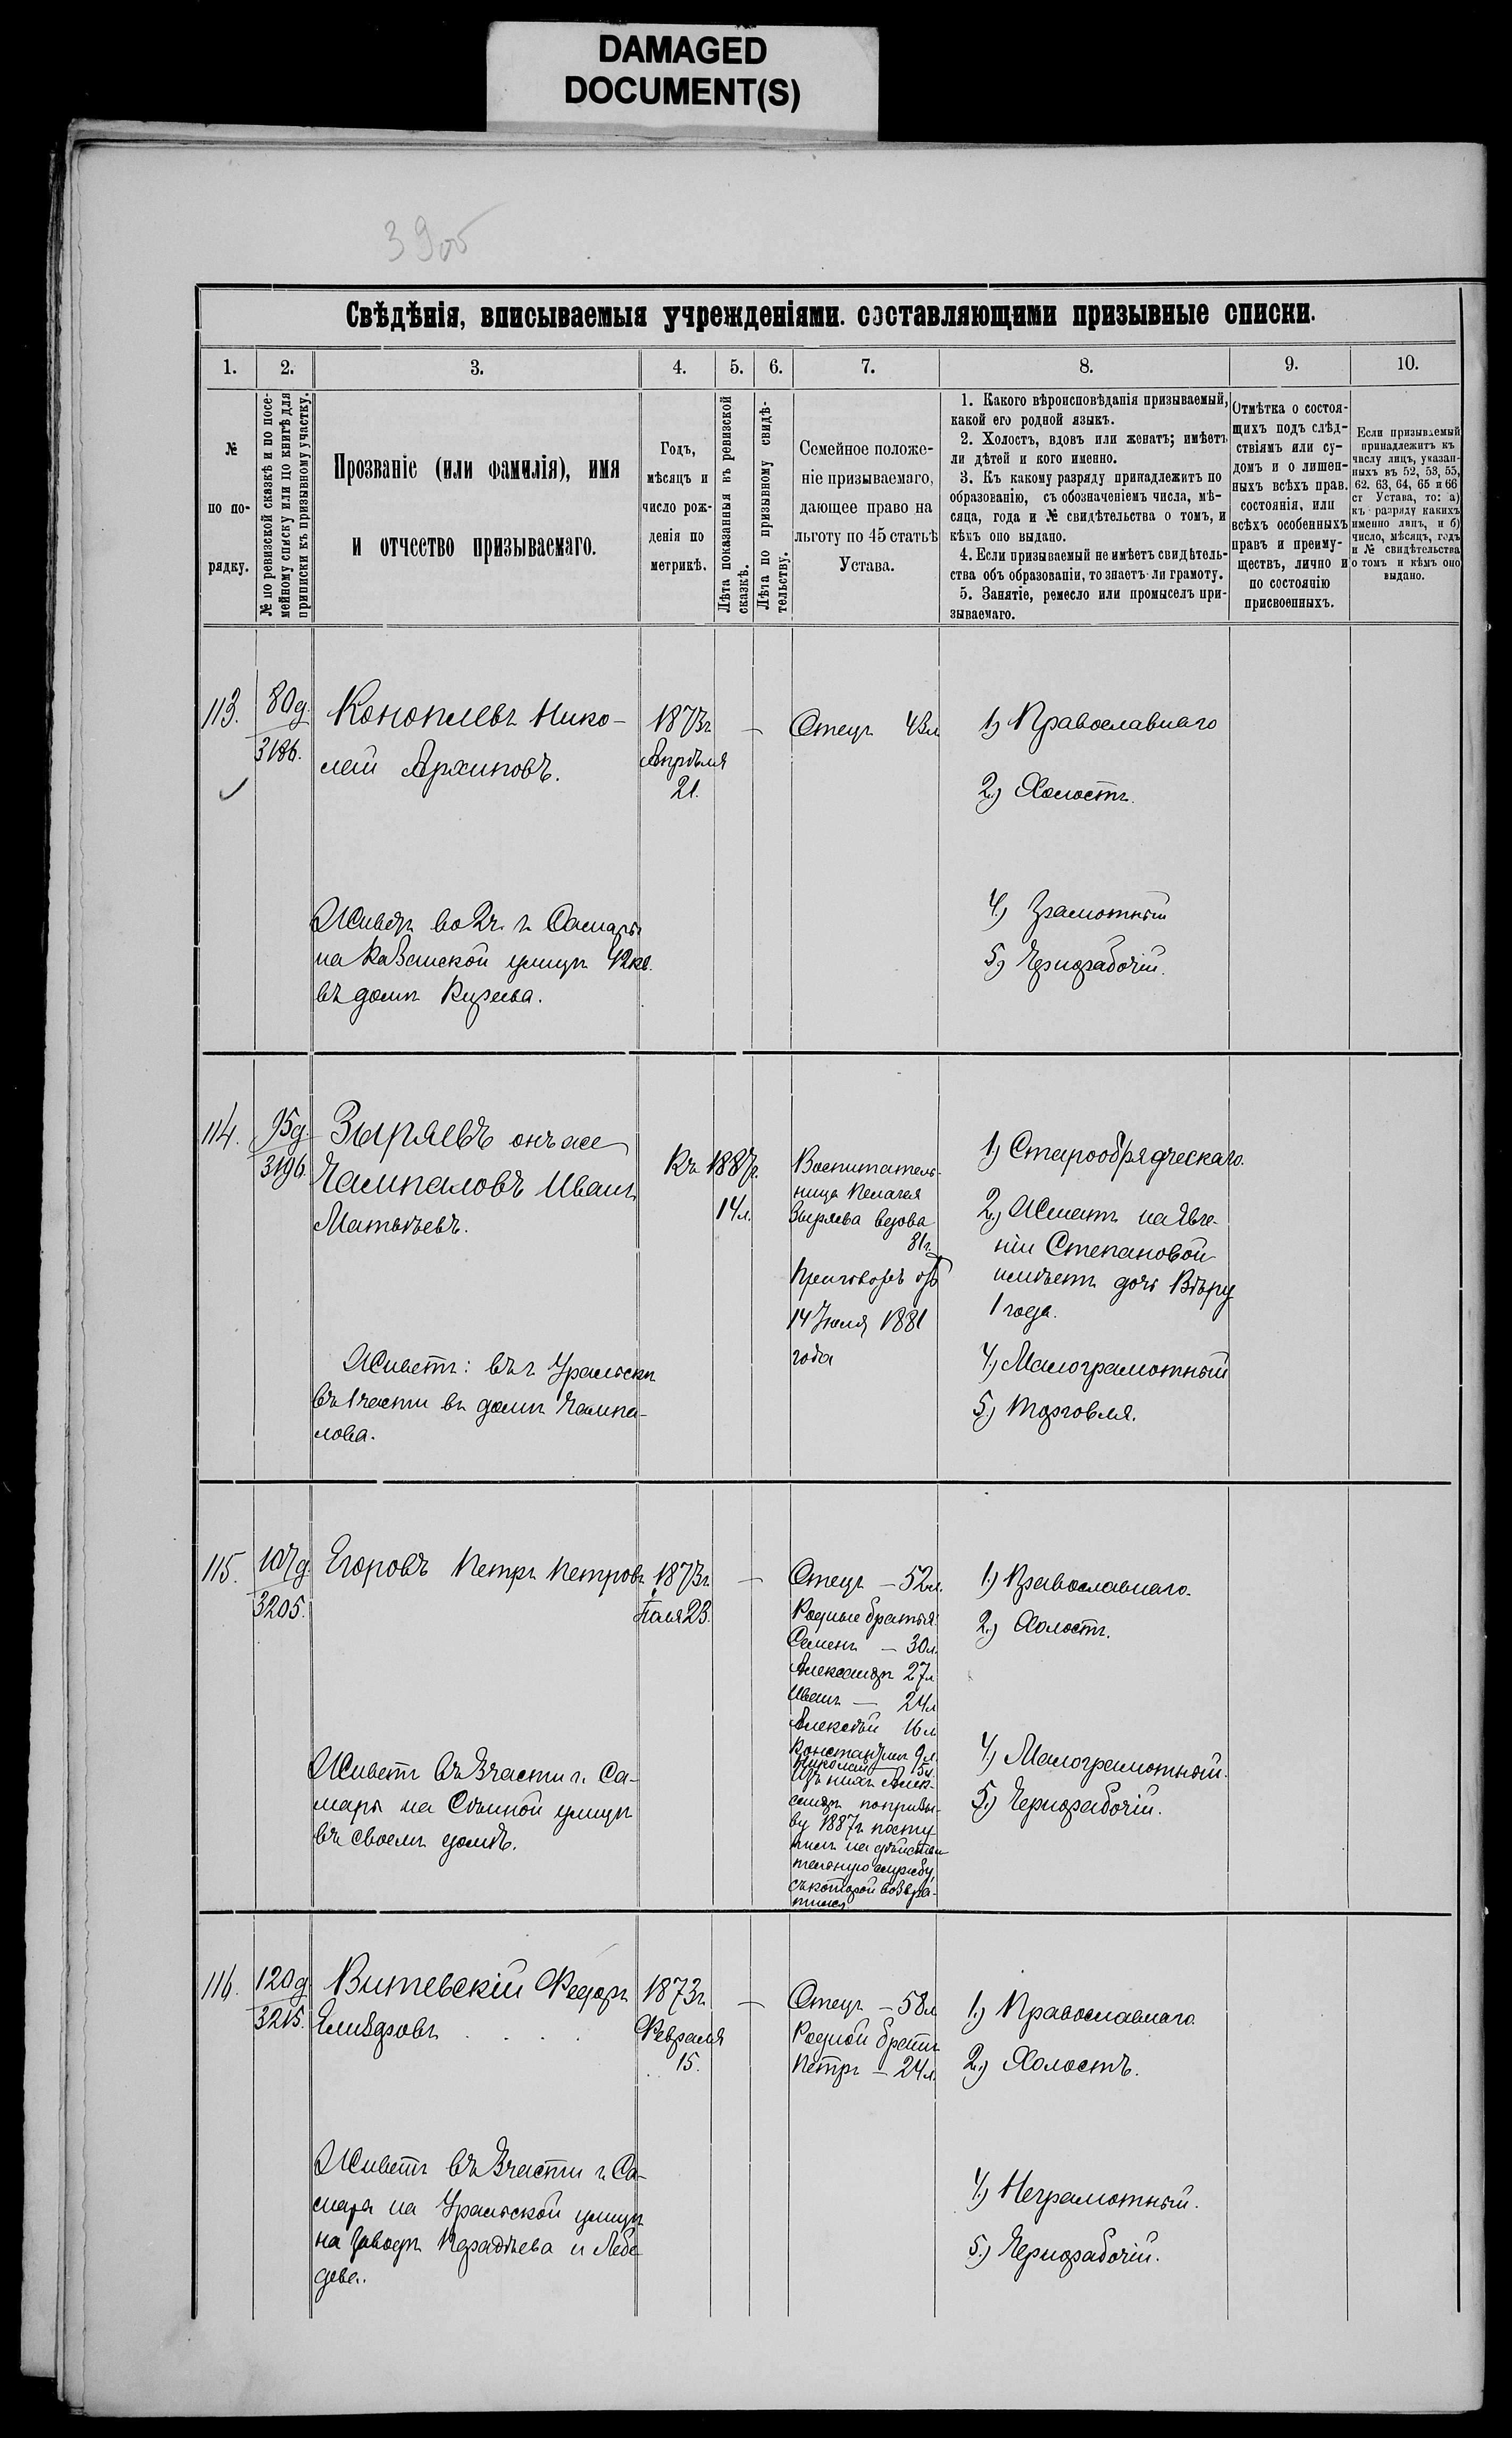 DAMAGED
DOCUMENT(S)
39об
Свѣдѣнія, вписываемыя учрежденіями. составляющими призывные списки.
1.
2.
3.
4.
5.
6.
7.
8.
9.
10.
№
по по-
рядку.
№ по ревизской сказкѣ и по посе-
мейному списку или по книгѣ для
приписки къ призывному участку.
Прозваніе (или фамилія), имя
и отчество призываемаго.
Годъ,
мѣсяцъ и
число рож-
денія по
метрикѣ.
Лѣта показанныя въ ревизской
сказкѣ.
Лѣта по призывному свидѣ-
тельству.
Семейное положе-
ніе призываемаго,
дающее право на
льготу по 45 статьѣ
Устава.
1. Какого вѣроисповѣданія призываемый,
какой его родной языкъ.
2. Холостъ, вдовъ или женатъ; имѣетъ
ли дѣтей и кого именно.
3. Къ какому разряду принадлежитъ по
образованію, съ обозначеніемъ числа, мѣ-
сяца, года и № свидѣтельства о томъ, и
кѣмъ оно выдано.
4. Если призываемый не имѣетъ свидѣтель-
ства объ образованіи, то знаетъ-ли грамоту.
5. Занятіе, ремесло или промыселъ при-
зываемаго.
Отмѣтка о состоя-
щихъ подъ слѣд-
ствіямъ или су-
домъ и о лишен-
ныхъ всѣхъ прав.
состоянія, или
всѣхъ особенныхъ
правъ и преиму-
ществъ, лично и
по состоянію
присвоенныхъ.
Если призываемый
принадлежитъ къ
числу лицъ, указан-
ныхъ въ 52, 53, 55,
62. 63, 64, 65 и 66
ст Устава, то: а)
къ разряду какихъ
именно лицъ, и б)
число, мѣсяцъ, годъ
и № свидѣтельства
о томъ и кѣмъ оно
выдано.
113.
80д.
3186.
Коноплевъ Нико-
лай Архиповъ.
1873г.
Апрѣля
21.
—
Отецъ 43л
1) Православнаго
2.) Холостъ.
4.) Грамотный
5) Чернорабочій.
Живетъ во 2ч. г. Самары
на Казанской улицѣ 42кв.
въ домѣ
114.
95д.
3196.
Зыряевъ онъ же
Чампаловъ Иванъ
Матвѣевъ.
Къ 1887г.
14л.
Воспитатель-
ница Пелагея
Зыряева вдова
81г.
Приговоръ об
14 Июля 1881
года
1) Старообрядческаго.
2.) Женатъ на Явге-
ніи Степановой
имѣетъ дочь Вѣру
1 года.
4.) Малограмотный
5.) Торговля.
Живетъ: въ г Уральскѣ
въ 1 части въ домѣ Чампа-
лова.
115.
107д.
3205.
Егоровъ Петръ Петровъ
1873г.
Іюля 23.
—
Отецъ — 52л.
Родные братья:
Семенъ — 30л.
Александръ 27л
Иванъ — 24л
Алексѣй 16л
Константинъ 9л.
Николай — 5л.
Изъ нихъ Алек-
сандръ по призы-
ву 1887г. посту
пилъ на дѣйстви
тельную службу,
съ которой возвра-
тился
1.) Православнаго.
2.) Холостъ.
4.) Малограмотный.
5.) Чернорабочій.
Живетъ въ 3 части г. Са-
мары на Сѣнной улицѣ
въ своемъ домѣ.
116.
120д
3215.
Витевскій Федоръ
1873г.
Февраля
15.
—
Отецъ — 58л
Родной братъ
Петръ — 24л.
1.) Православнаго.
2.) Холостъ.
4.) Неграмотный.
5.) Чернорабочій.
Живетъ въ 3 части г. Са-
мары на Уральской улицѣ
на заводѣ и Лебе
дева.